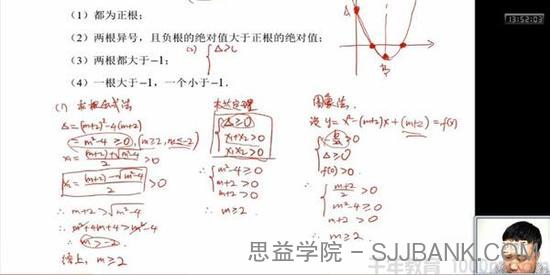 13:52:03
（1）都为正根；
（2）两根异号，且负根的绝对值大于正根的绝对值；
（3）两根都大于-1；
（4）一根大于-1，一个小于-1．
A
B
(1) 求根公式法
Δ=(m+2)²-4(m+2)
=m²-4≥0, (m≥2, m≤-2)
x₁=\frac{(m+2)+\sqrt{m²-4}}{2}>0
x₂=\frac{(m+2)-\sqrt{m²-4}}{2}>0
∴ m+2>\sqrt{m²-4}
∴ m²+4m+4>m²-4
∴ m>-2
综上, m≥2
韦达定理
Δ≥0
x₁+x₂>0
x₁x₂>0
∴ m²-4≥0
m+2>0
m+2>0
∴ m≥2
图象法
设 y=x²-(m+2)x+(m+2)=f(x)
Δ≥0
f(0)>0
∴ \frac{m+2}{2}>0
m²-4≥0
m+2>0
∴ m≥2
思益学院 - SJJBANK.COM